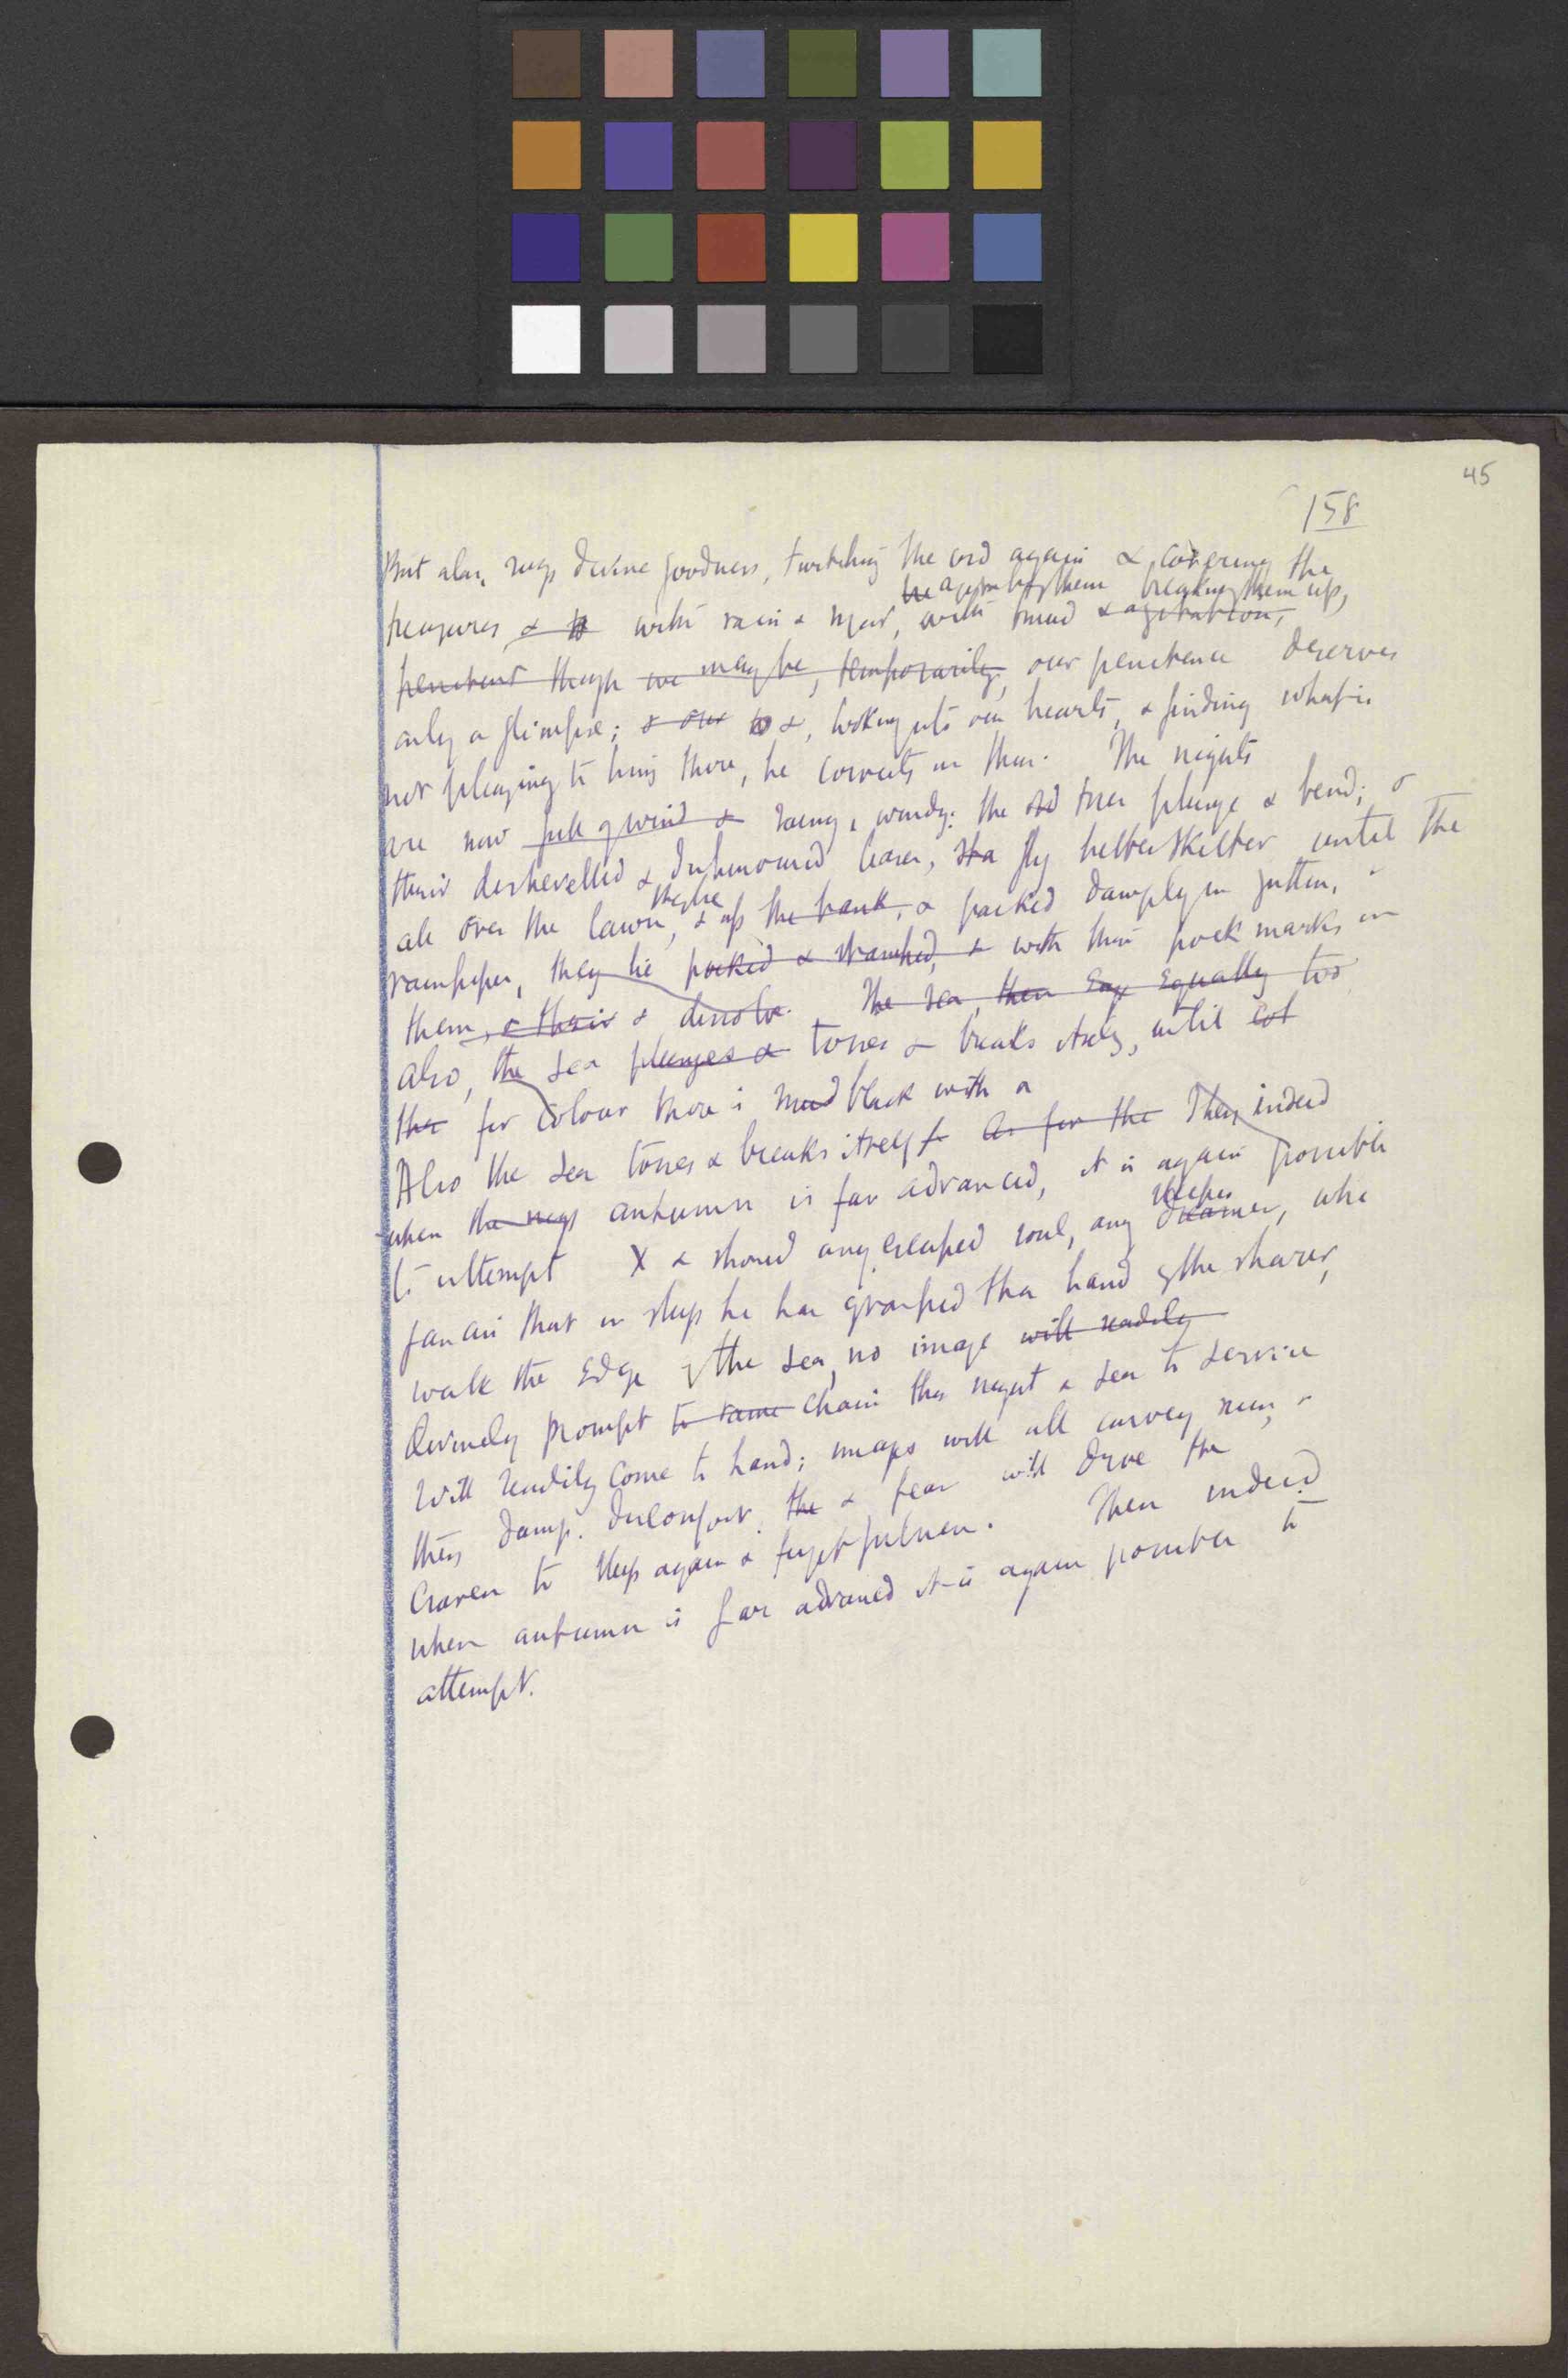 45
158
But alas, says divine goodness, twitching the cord again & covering the
he agitates them breaking them up,
treasures, & with rain & mist, with mud & agitation,
penitent though we may be, temporarily, our penitence deserves
only a glimpse; & our & , looking into our hearts, & finding what is
not pleasing to him there, he covers them. The nights
are now full of wind & windy: the old trees plunge & bend; &
their dishevelled & dishonoured leaves, fly helter skelter until the
they lie
all over the lawn, & up the bank, & packed damply in gutters, &
rainpipes, they lie pocked & with their pock marks on
them, & their & dissolve. The sea, then equally too
also, the sea plunges & tosses & breaks itself, until
for colour there is mud black with a
Also the sea tosses & breaks itself As for the Then indeed
when the autumn is far advanced, it is again possible
sleeper
to attempt X & should any escaped soul, any dreamer, who
fancies that in sleep he has grasped the hand of the sharer,
walk the edge of the sea, no image will readily
divinely prompt to tame chain this night & sea to service
will readily come to hand; images will all curvey run, &
this damp. Discomfort. the & fear will drive the
craven to sleep again & forgetfulness. Then indeed
when autumn is far advanced it is again possible to
attempt.